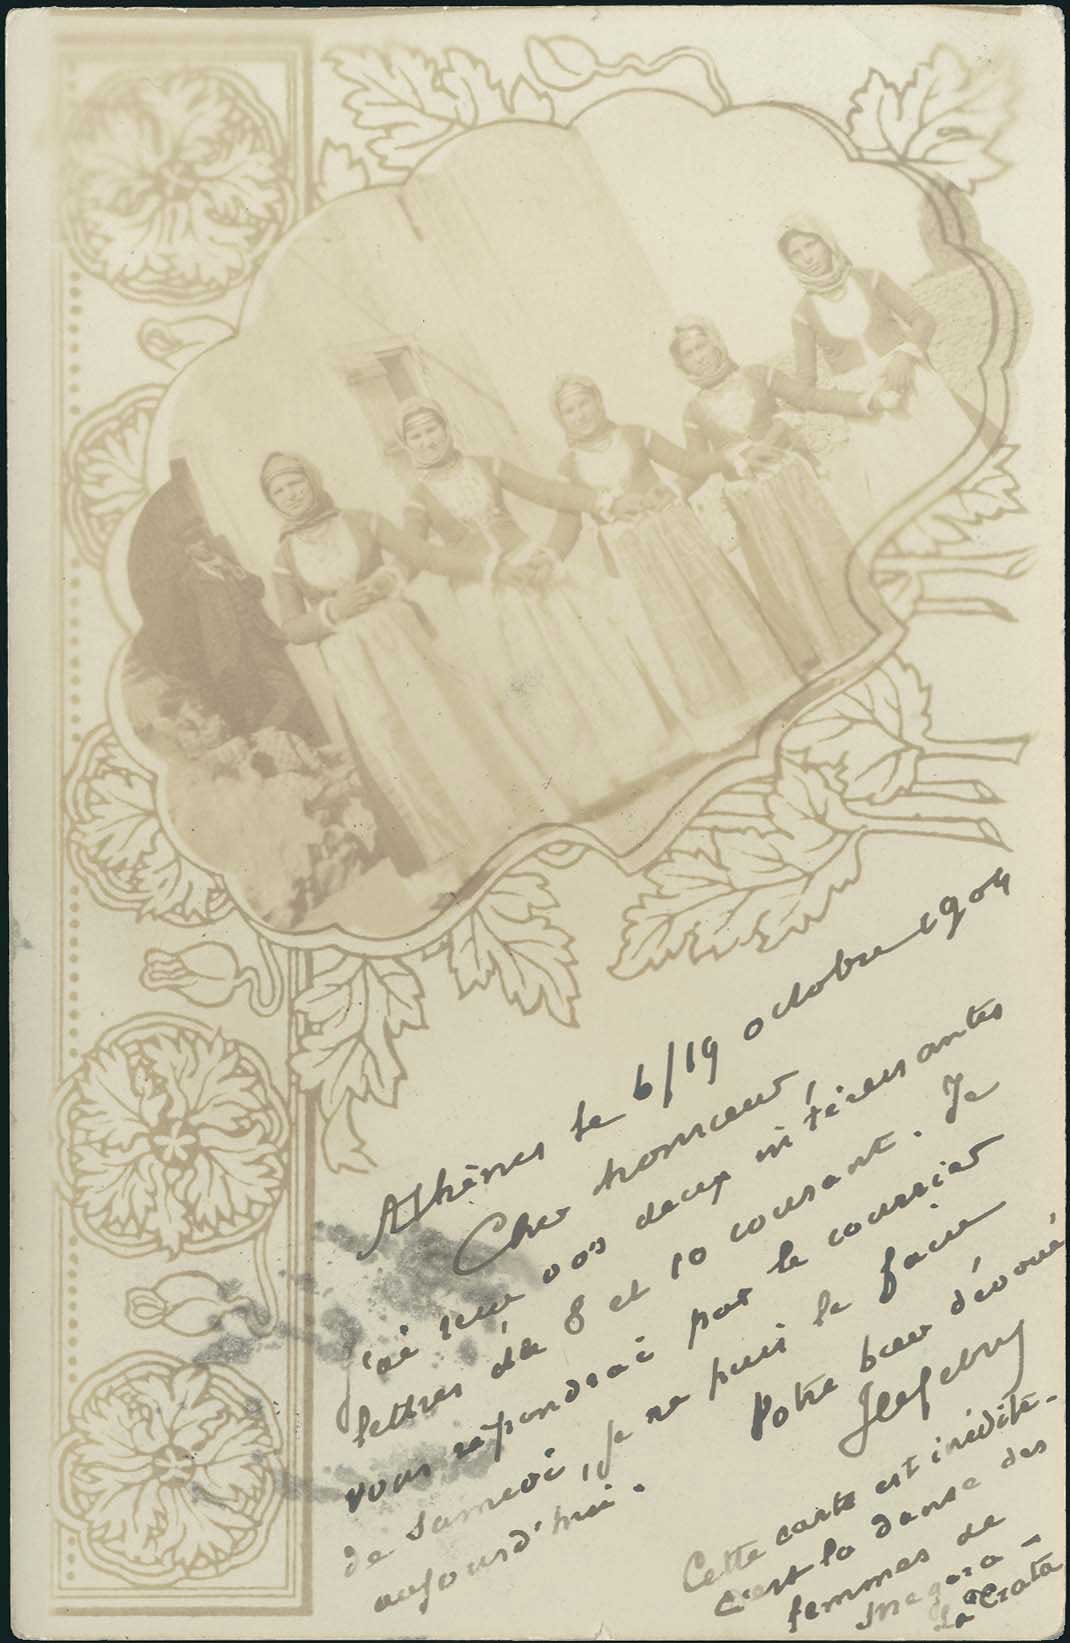 Athènes le 6/19 octobre 1904
Cher monsieur,
J'ai reçu vos deux intéressantes
lettres du 8 et 10 courant. Je
vous répondrai par le courrier
de samedi, je ne puis le faire
aujourd'hui.
Votre bien dévoué
Cette carte est inédite.
C'est la danse des
femmes de
Mégara -
La Trata